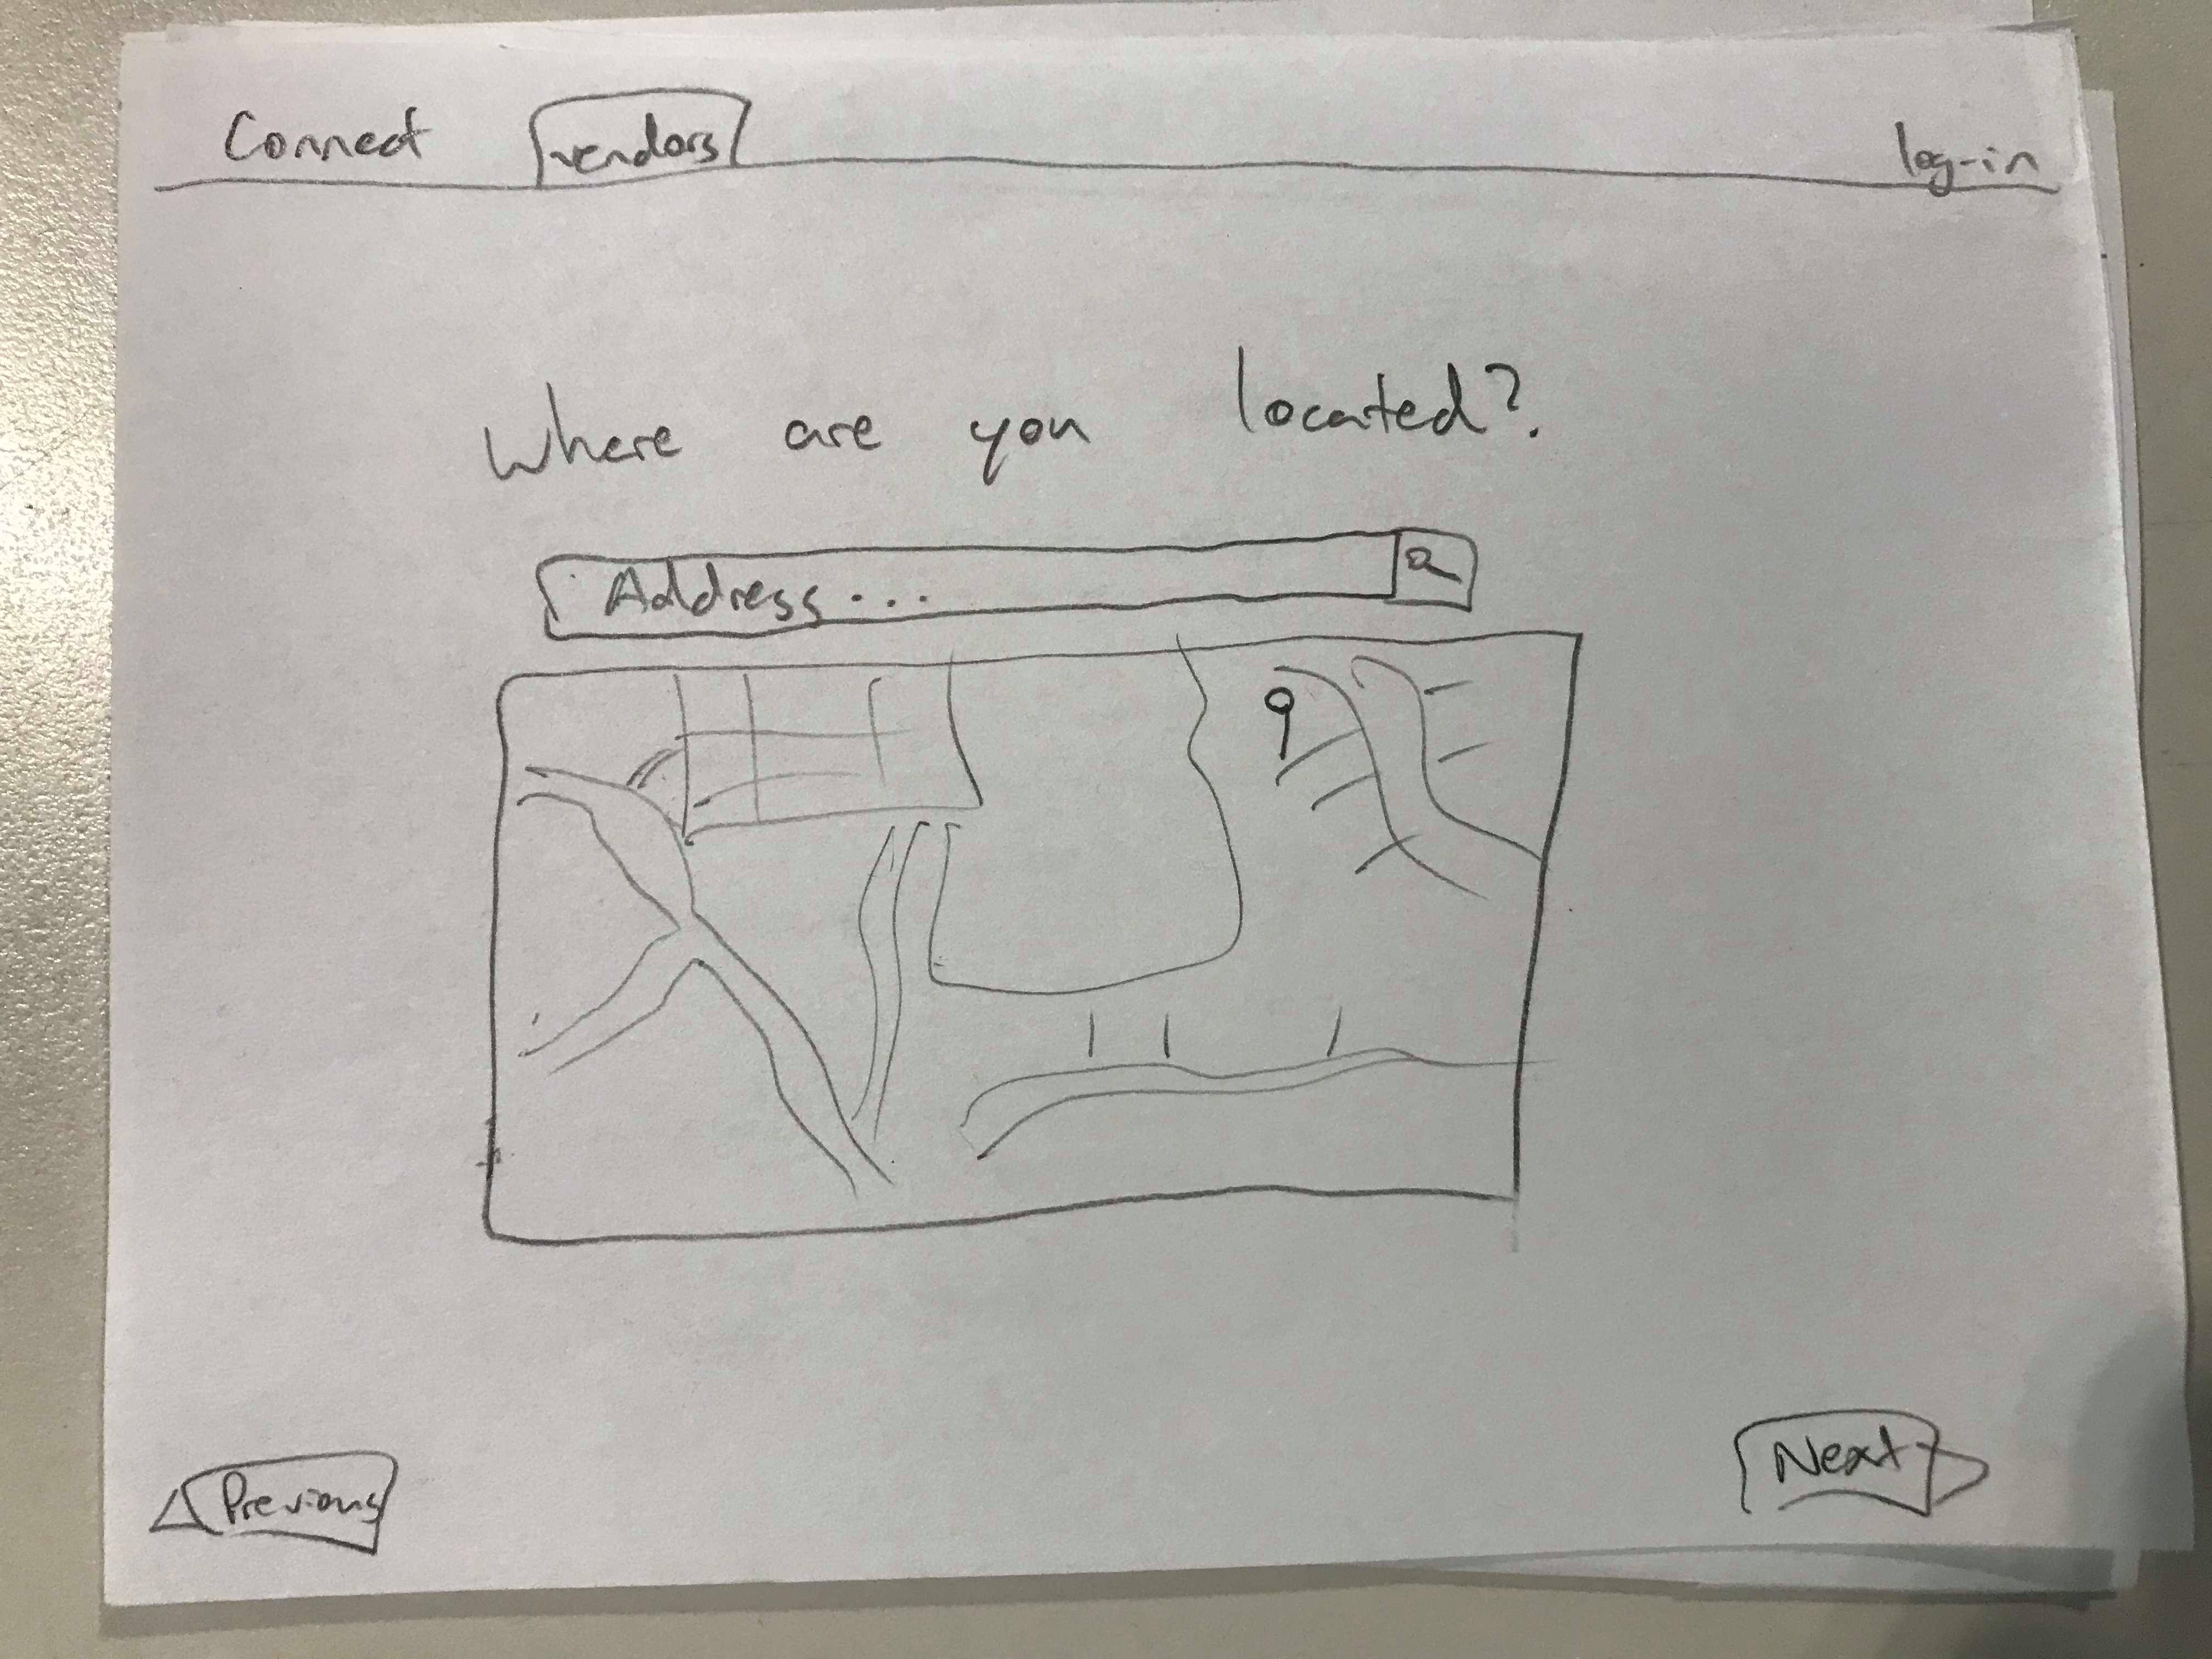 Connect vendors log-in
Where are you located?
Address...
Previous Next